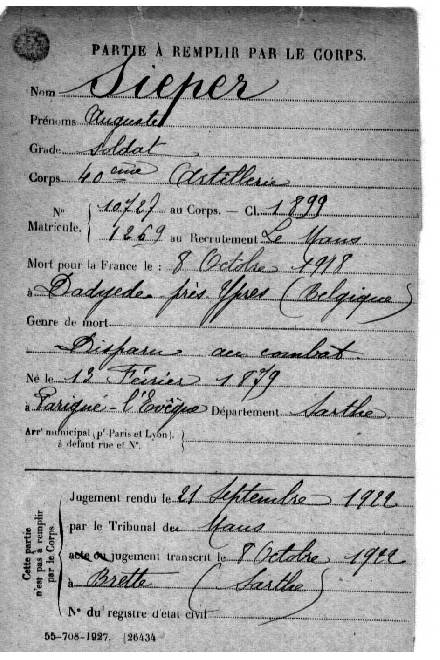 PARTIE À REMPLIR PAR LE CORPS.
Nom Sieper
Prénoms Auguste
Grade Soldat
Corps 40ème Artillerie
N° Matricule. { 10727 au Corps. — Cl. 1899
1269 au Recrutement Le Mans
Mort pour la France le : 8 Octobre 1918
à Dadyede près Ypres (Belgique)
Genre de mort
Disparu au combat
Né le 13 Février 1879
à Parigné l'Evêque Département Sarthe
Arrt municipal (pr Paris et Lyon), à défaut rue et N°. {
Cette partie n'est pas à remplir par le Corps.
Jugement rendu le 21 Septembre 1922
par le Tribunal de Mans
acte ou jugement transcrit le 8 Octobre 1922
à Brette (Sarthe)
N° du registre d'état civil
55-708-1927. [26434